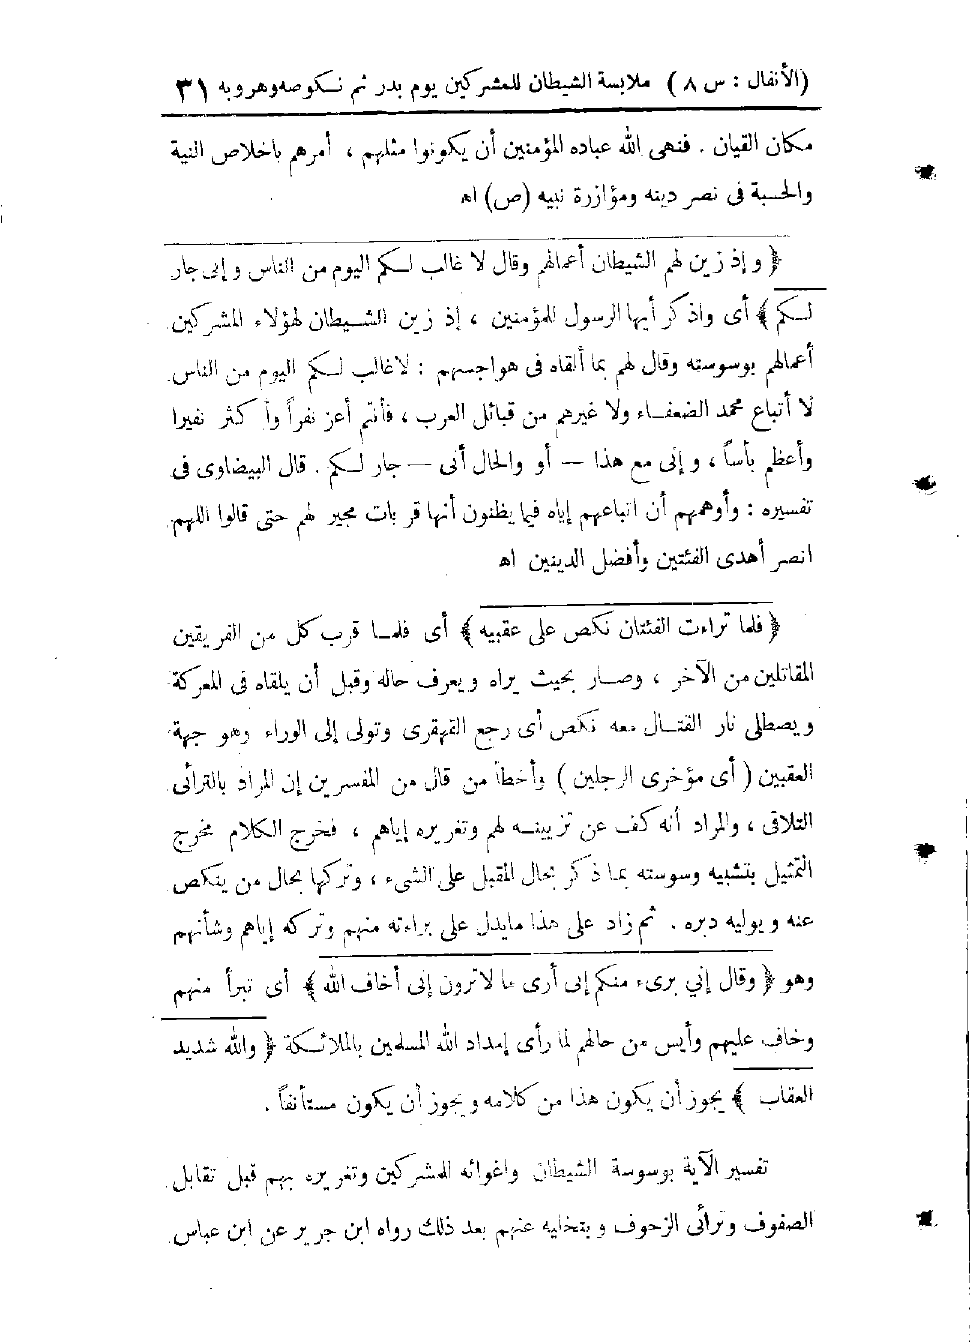 (الأنفال : س ٨) ملابسة الشيطان للمشركين يوم بدر ثم نكوصه وهروبه ٣١
مكان القيان . فنهى الله عباده المؤمنين أن يكونوا مثلهم ، أمرهم باخلاص النية
والحسبة فى نصر دينه ومؤازرة نبيه (ص) اه
﴿ وإذ زين لهم الشيطان أعمالهم وقال لا غالب لكم اليوم من الناس وإنى جار
لكم ﴾ أى واذكر أيها الرسول للمؤمنين ، إذ زين الشيطان لهؤلاء المشركين
أعمالهم بوسوسته وقال لهم بما ألقاه فى هواجسهم : لاغالب لكم اليوم من الناس
لا أتباع محمد الضعفاء ولا غيرهم من قبائل العرب ، فأنتم أعز نفراً وأكثر نفيرا
وأعظم بأساً ، وإنى مع هذا — أو والحال أنى — جار لكم . قال البيضاوى فى
تفسيره : وأوهمهم أن اتباعهم إياه فيما يظنون أنها قربات مجير لهم حتى قالوا اللهم
انصر أهدى الفئتين وأفضل الدينين اه
﴿ فلما تراءت الفئتان نكص على عقبيه ﴾ أى فلما قرب كل من الفريقين
المقاتلين من الآخر ، وصار بحيث يراه ويعرف حاله وقبل أن يلقاه فى المعركة
ويصطلى نار القتال معه نكص أى رجع القهقرى وتولى إلى الوراء وهو جهة
العقبين (أى مؤخرى الرجلين) وأخطأ من قال من المفسرين إن المراد بالترائى
التلاقى ، والمراد أنه كف عن تزيينه لهم وتغريره إياهم ، فخرج الكلام مخرج
التمثيل بتشبيه وسوسته بما ذكر بحال المقبل على الشىء ، وتركها بحال من ينكص
عنه ويوليه دبره . ثم زاد على هذا مايدل على براءته منهم وتركه إياهم وشأنهم
وهو ﴿ وقال إني برىء منكم إنى أرى ما لاترون إنى أخاف الله ﴾ أى تبرأ منهم
وخاف عليهم وأيس من حالهم لما رأى إمداد الله المسلمين بالملائكة ﴿ والله شديد
العقاب ﴾ يجوز أن يكون هذا من كلامه ويجوز أن يكون مستأنفاً .
تفسير الآية بوسوسة الشيطان واغوائه للمشركين وتغريره بهم قبل تقابل
الصفوف وترائى الزحوف وبتخليه عنهم بعد ذلك رواه ابن جرير عن ابن عباس